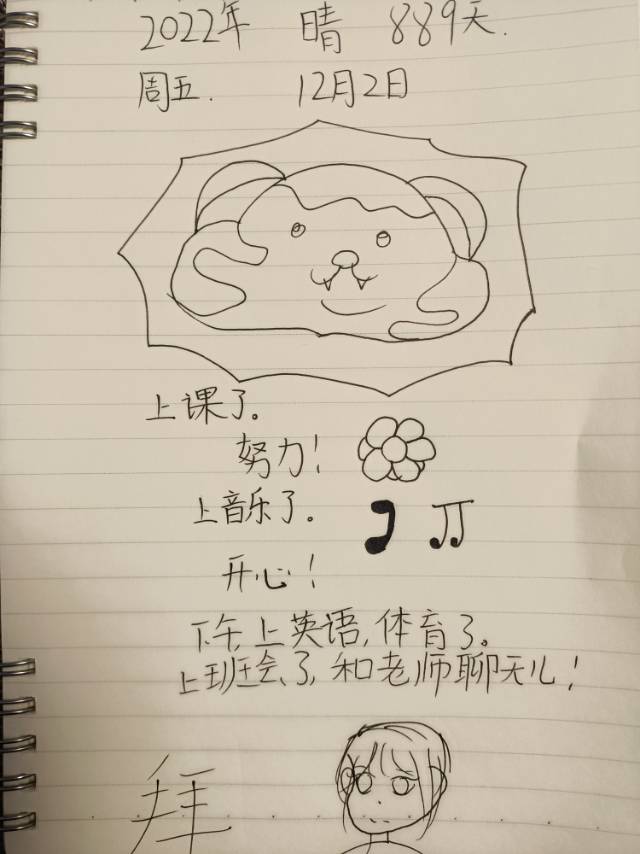 2022年 晴 889天.
周五. 12月2日
上课了。
努力！
上音乐了。
开心！
下午,上英语,体育了。
上班会了,和老师聊天儿！
拜